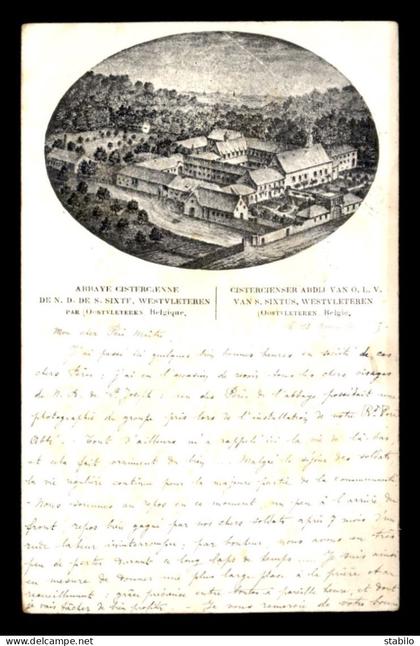 ABBAYE CISTERCIENNE
DE N. D. DE S. SIXTE, WESTVLETEREN
PAR (OOSTVLETEREN Belgique,
CISTERCIENSER ABDIJ VAN O. L. V.
VAN S. SIXTUS, WESTVLETEREN
(OOSTVLETEREN Belgie,
Mon cher Père Maître
J'ai passé ici quelques bien bonnes heures en société de ces
chers Pères ; j'ai eu l'occasion de revoir tous les chers visages
de N. D. de St Joseph : un des Pères de l'abbaye possédait une
photographie du groupe pris lors de l'installation de notre Rd Père
Abbé. Tout d'ailleurs m'a rappelé ici la vie de là bas,
et cela fait vraiment du bien ... Malgré le séjour des soldats
la vie régulière continue pour la majeure partie de la communauté
Nous sommes au repos en ce moment, un peu à l'arrière du
front, repos bien gagné par nos chers soldats après 7 mois d'un
rude labeur ininterrompu ; par bonheur nous avons eu très
peu de pertes durant ce long laps de temps .... Je suis ainsi
en mesure de donner une plus large place à la prière et au
recueillement : grâce précieuse entre toutes à pareille heure, et dont
je vais tâcher de bien profiter. - Je vous remercie de votre bonne
delcampe.net